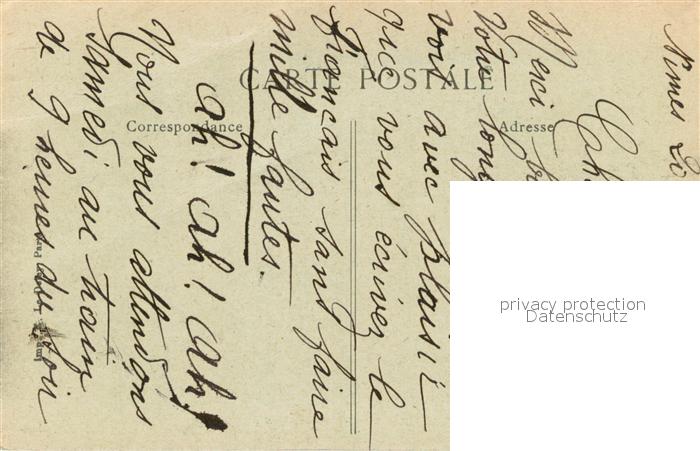 Nîmes
Merci
Votre
voir avec plaisir
que vous écrivez le
Français sans faire
mille fautes.
Ah! Ah! Ah!
Nous vous attendons
Samedi au train
de 9 heures du soir
CARTE POSTALE
Correspondance
Adresse
privacy protection
Datenschutz